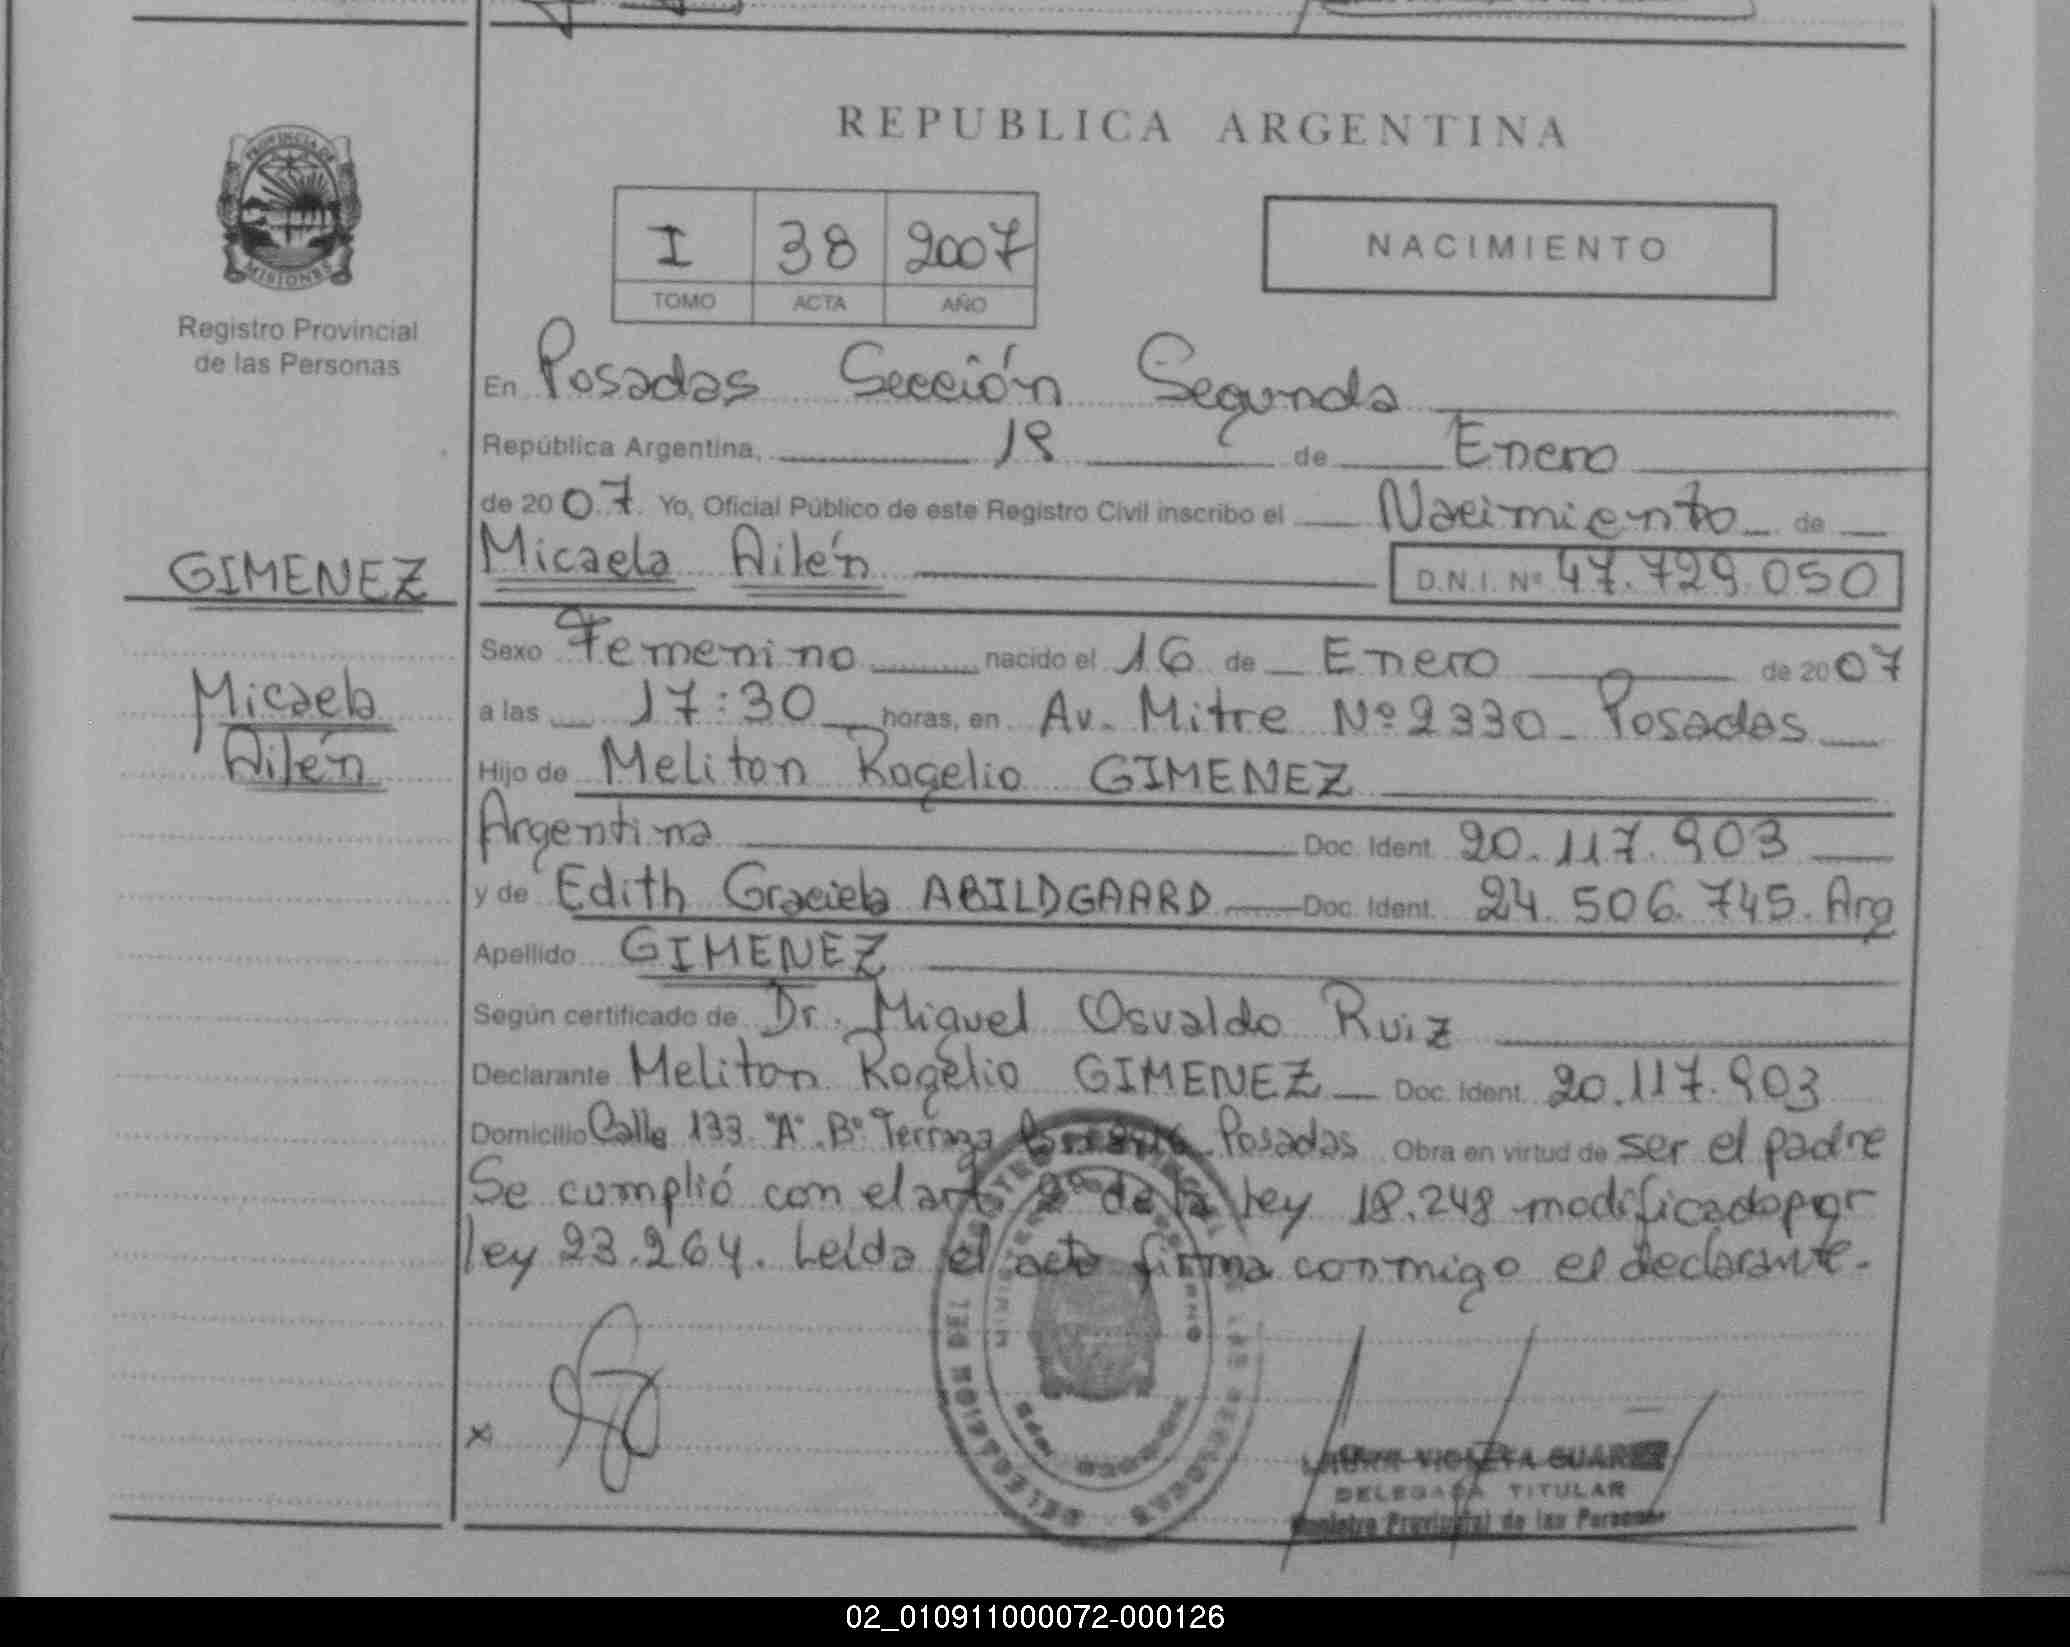 REPUBLICA ARGENTINA
PROVINCIA DE
MISIONES
Registro Provincial
de las Personas
I 38 2007
TOMO ACTA AÑO
NACIMIENTO
En Posadas Sección Segunda
República Argentina, 18 de Enero
de 2007. Yo, Oficial Público de este Registro Civil inscribo el Nacimiento de
GIMENEZ
Micaela Ailén
D.N.I. Nº 47.729.050
Sexo Femenino nacido el 16 de Enero de 2007
Micaela
Ailén
a las 17:30 horas, en Av. Mitre Nº 2330 - Posadas
Hijo de Meliton Rogelio GIMENEZ
Argentina Doc. Ident. 20.117.903
y de Edith Graciela ABILDGAARD Doc. Ident. 24.506.745. Arg
Apellido GIMENEZ
Según certificado de Dr. Miguel Osvaldo Ruiz
Declarante Meliton Rogelio GIMENEZ Doc. Ident. 20.117.903
Domicilio Calle 133 "A" Bº Terraza Posadas Obra en virtud de ser el padre
Se cumplió con el art 2º de la ley 18.248 modificado por
ley 23.264. Leída el acta firma conmigo el declarante.
x
DELEGADA TITULAR
Registro Provincial de las Personas
02_010911000072-000126